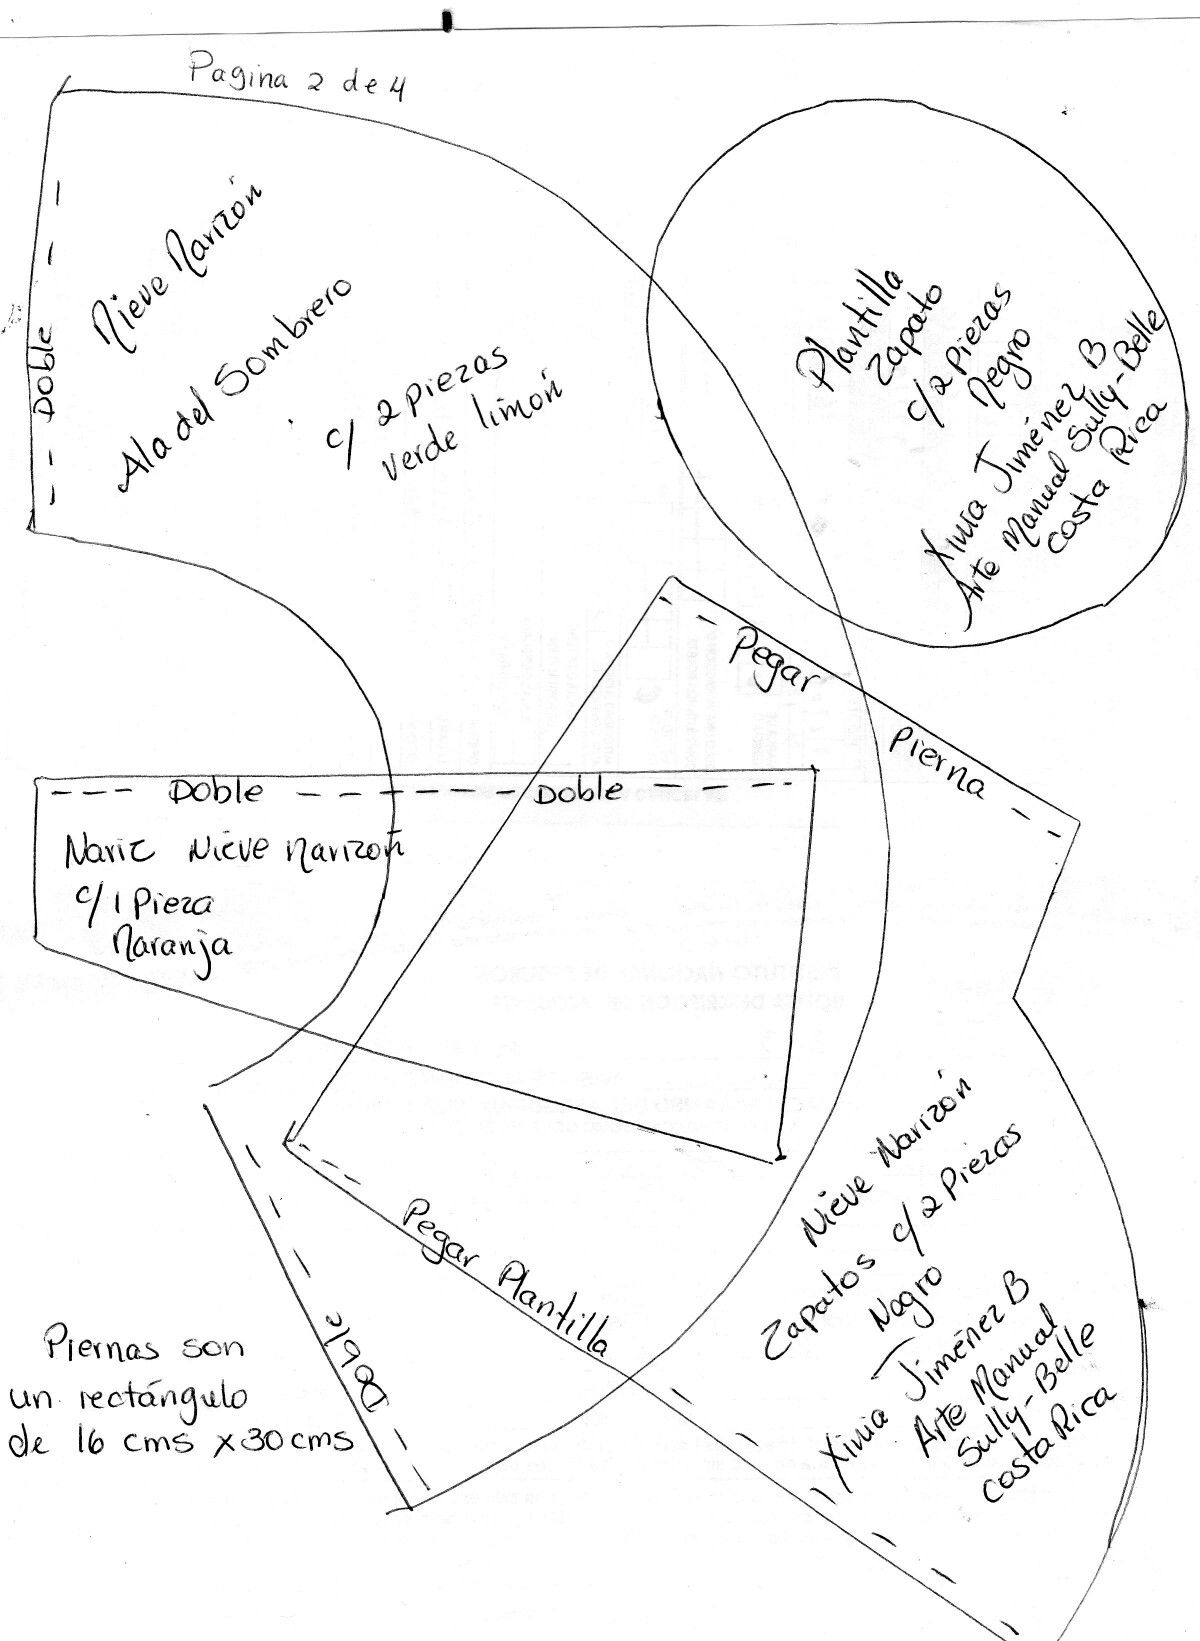 Pagina 2 de 4
Nieve Narizón
Ala del Sombrero
c/ 2 piezas
verde limón
Doble
Plantilla
Zapato
c/2 piezas
Negro
Xinia Jiménez B
Arte Manual Sully-Belle
Costa Rica
Pegar Pierna
Doble Doble
Nariz Nieve narizón
c/1 Pieza
Naranja
Pegar Plantilla
Doble
Nieve Narizón
Zapatos c/2 Piezas
Negro
Xinia Jiménez B
Arte Manual
Sully-Belle
Costa Rica
Piernas son
un rectángulo
de 16 cms x 30 cms